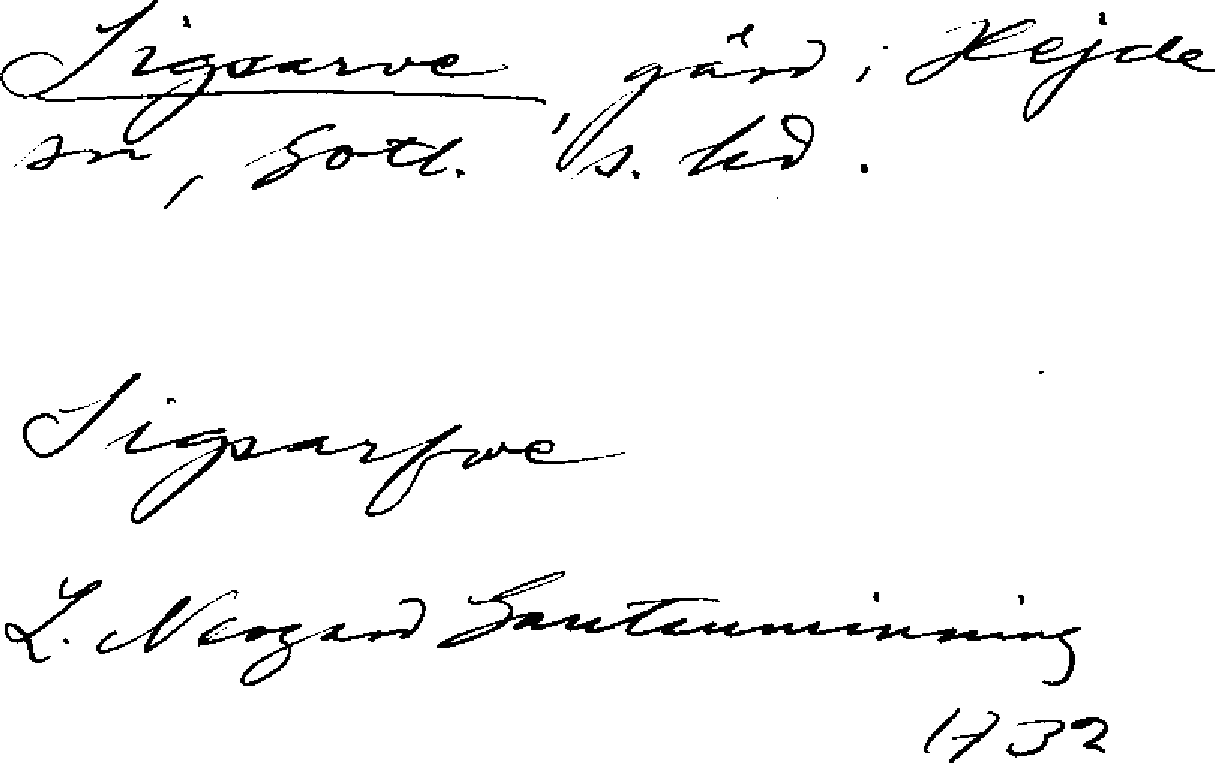 Sigsarve, gård i Hejde
sn, Gotl. s. hd.
Sigsarfwe
L. Neogard Gautauminning
1732